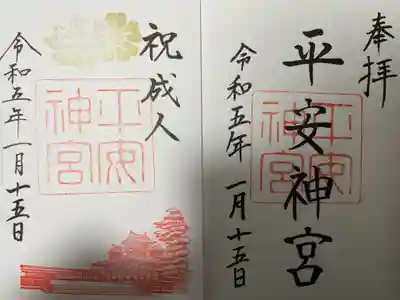 奉拝
平安神宮
令和五年一月十五日
平安神宮
祝成人
令和五年一月十五日
平安神宮